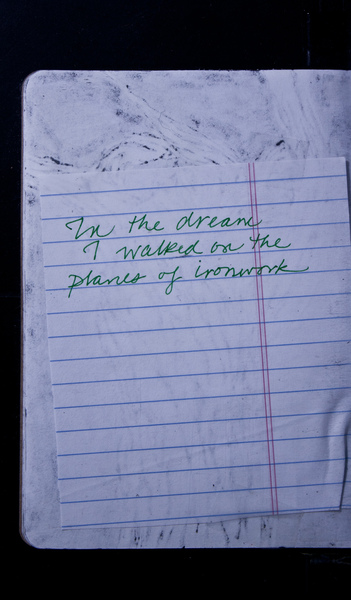 In the dream
I walked on the
planes of ironwork